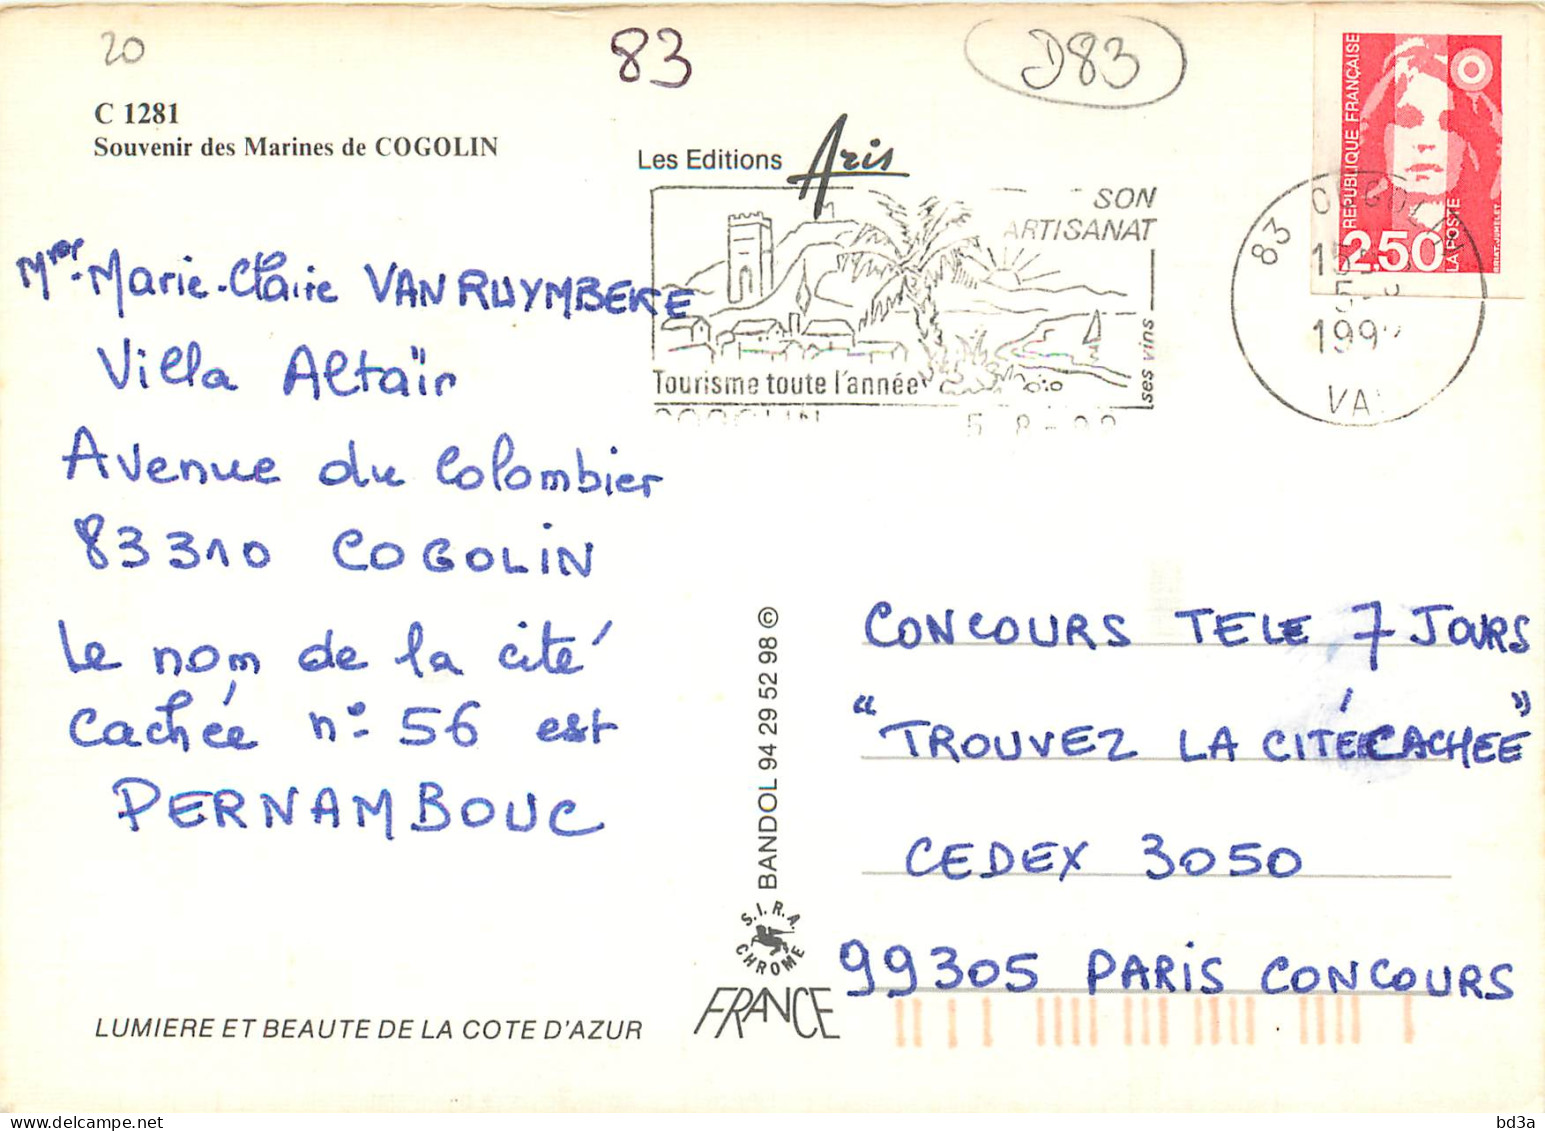 20
83
D83
C 1281
Souvenir des Marines de COGOLIN
Les Editions Aris
REPUBLIQUE FRANÇAISE
2,50 LA POSTE
SON
ARTISANAT
ses vins
Tourisme toute l'année
COGOLIN 5 8-
83 COGOLIN
15
5
199
VA
Mme Marie-Claire VAN RUYMBEKE
Villa Altaïr
Avenue du Colombier
83310 COGOLIN
Le nom de la cité
cachée n° 56 est
PERNAMBOUC
CONCOURS TELE 7 JOURS
"TROUVEZ LA CITÉ CACHEE"
CEDEX 3050
99305 PARIS CONCOURS
BANDOL 94 29 52 98 ©
S.I.R.A.
CHROME
FRANCE
LUMIERE ET BEAUTE DE LA COTE D'AZUR
bd3a